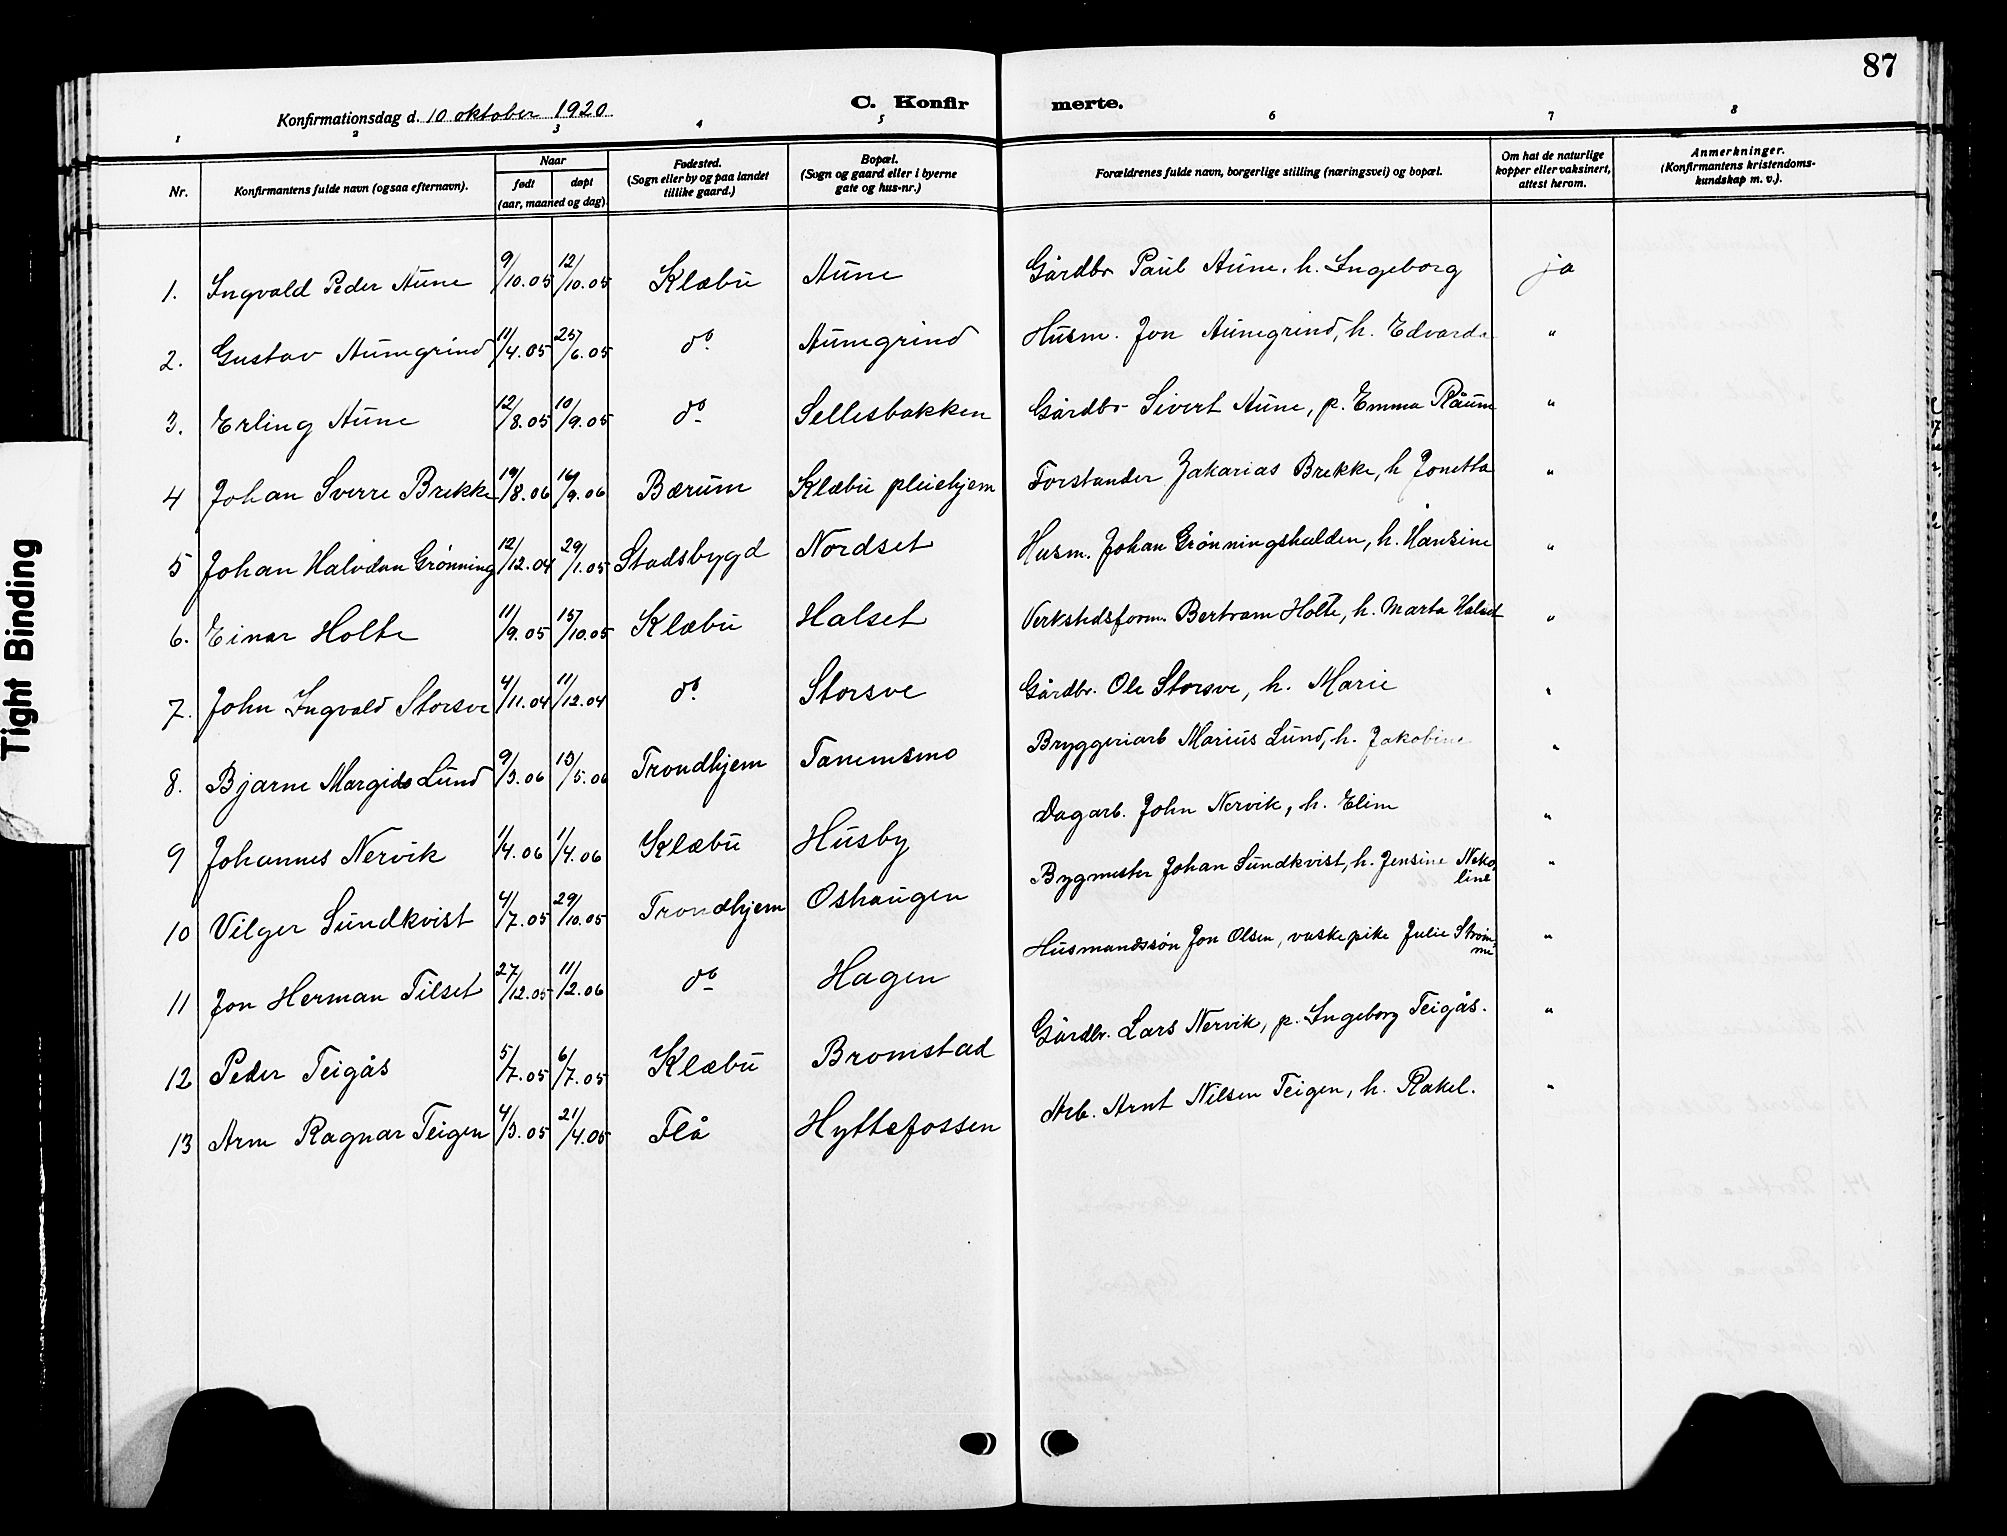 87
Konfirmationsdag d. 10 oktober 1920.
C. Konfirmerte.
1 2 3 4 5 6 7 8
Nr.
Konfirmantens fulde navn (ogsaa efternavn).
Naar
født døpt
(aar, maaned og dag)
Fødested.
(Sogn eller by og paa landet
tillike gaard.)
Bopæl.
(Sogn og gaard eller i byerne
gate og hus-nr.)
Forældrenes fulde navn, borgerlige stilling (næringsvei) og bopæl.
Om hat de naturlige
kopper eller vaksinert,
attest herom.
Anmerkninger.
(Konfirmantens kristendoms-
kundskap m. v.).
1. Ingvald Peder Aune 9/10.05 12/10.05 Klæbu Aune Gårdbr Paul Aune. h. Ingeborg ja
2. Gustav Aunegrind 11/4.05 25/6.05 do Aunegrind Husm. Jon Aunegrind, h. Edvarda "
3. Erling Aune 12/8.05 10/9.05 do Sellesbakken Gårdbr Sivert Aune, p. Emma Råum "
4 Johan Sverre Brekke 19/8.06 16/9.06 Bærum Klæbu pleiehjem Forstander Zakarias Brekke, h Jonetta "
5 Johan Halvdan Grønning 12/12.04 29/1.05 Stadsbygd Nordset Husm. Johan Grønningshalden, h. Hansine "
6. Einar Holte 11/9.05 15/10.05 Klæbu Halset Verkstedsform. Bertram Holte, h. Marta Halset "
7. John Ingvald Storsve 4/11.04 11/12.04 do Storsve Gårdbr. Ole Storsve, h. Marie "
8. Bjarne Margido Lund 9/3.06 13/5.06 Trondhjem Tanemsmo Bryggeriarb Marius Lund, h. Jakobine "
9 Johannes Nervik 1/4.06 1/4.06 Klæbu Husby Dagarb. John Nervik, h. Elim "
10 Vilger Sundkvist 4/7.05 29/10.05 Trondhjem Oshaugen Bygmester Johan Sundkvist, h. Jensine Nekoline "
11 Jon Herman Tilset 27/12.05 11/2.06 do Hagen Husmandssøn Jon Olsen, vaskepike Julie Strømme "
12 Peder Teigås 5/7.05 6/7.05 Klæbu Bromstad Gårdbr. Lars Nervik, p. Ingeborg Teigås. "
13 Arne Ragnar Teigen 4/3.05 21/4.05 Flå Hyttefossen Arb. Arnt Nilsen Teigen, h. Rakel. "
Tight Binding